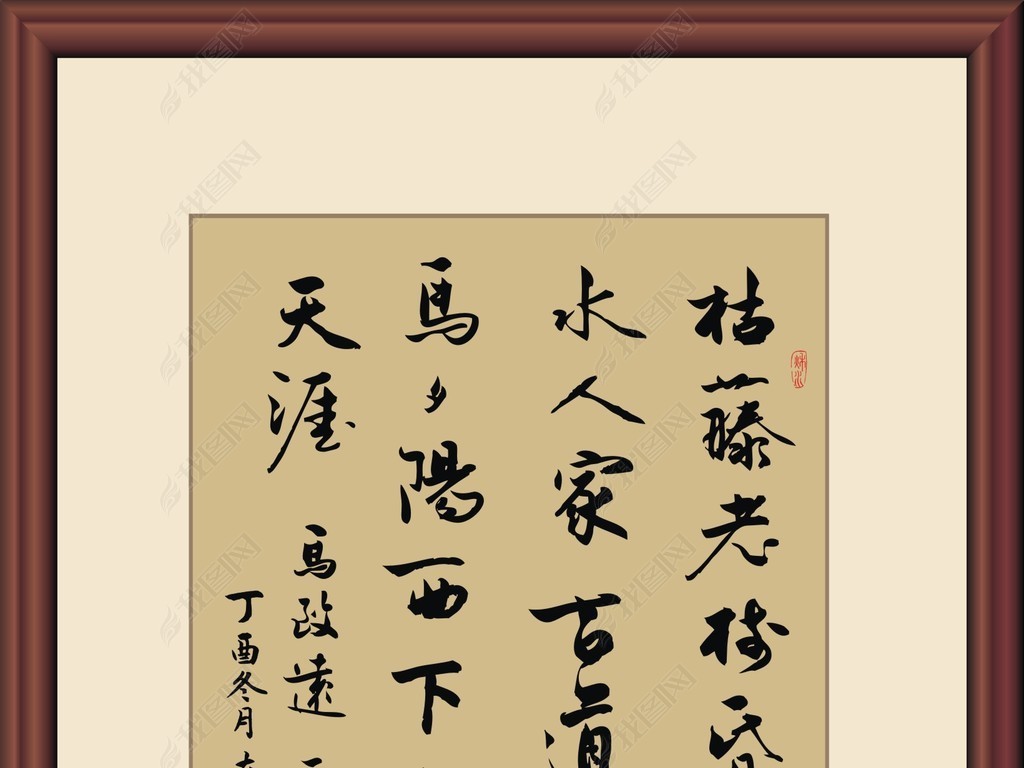 枯藤老树昏
水人家古道
馬夕陽西下
天涯
馬致遠
丁酉冬月
我图网